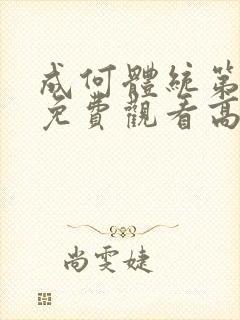 成何體統第
免費觀看高
尚雯婕